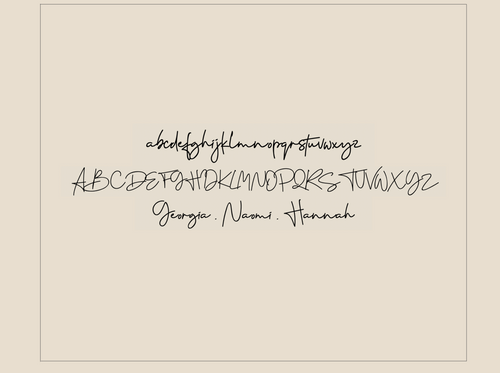 abcdefghijklmnopqrstuvwxyz
ABCDEFGHIJKLMNOPQRSTUVWXYZ
Georgia . Naomi . Hannah